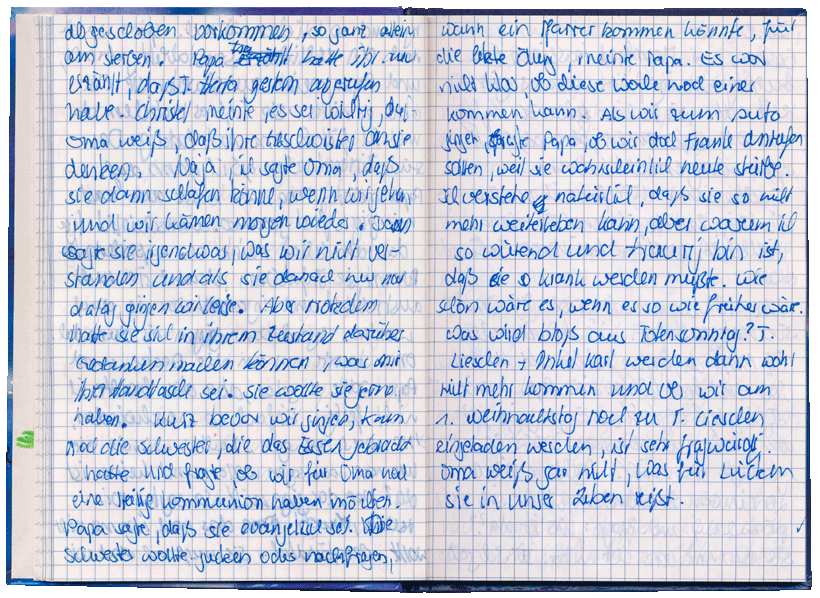 abgeschoben vorkommen, so ganz allein
am sterben. Papa hatte Ostl. nur
erzählt, daß T. Herta gestern angerufen
habe. Christel meinte, es sei wichtig, daß
Oma weiß, daß ihre Geschwister an sie
denken. Naja, ich sagte Oma, daß
sie dann schlafen könne, wenn wir gehen,
und wir kämen morgen wieder. Dann
sagte sie irgendwas, was wir nicht ver-
standen und als sie danach nur noch
dalag gingen wir leise. Aber trotzdem
hatte sie sich in ihrem Zustand darüber
Gedanken machen können, was mit
ihrer Handtasche sei. Sie wollte sie gerne
haben. Kurz bevor wir gingen, kam
noch die Schwester, die das Essen gebracht
hatte und fragte, ob wir für Oma noch
eine heilige Kommunion haben möchten.
Papa sagte, daß sie evangelisch sei. Die
Schwester wollte gucken oder nachfragen,
wann ein Pfarrer kommen könnte, für
die letzte Ölung, meinte Papa. Es war
nicht klar, ob diese Woche noch einer
kommen kann. Als wir zum Auto
gingen, fragte Papa, ob wir doch Frank anrufen
sollten, weil sie wahrscheinlich heute stürbe.
Ich verstehe natürlich, daß sie so nicht
mehr weiterleben kann, aber warum ich
so wütend und traurig bin ist,
daß sie so krank werden mußte. Wie
schön wäre es, wenn es so wie früher wäre.
Was wird bloß aus Totensonntag? T.
Lieschen + Onkel Karl werden dann wohl
nicht mehr kommen und ob wir am
1. Weihnachtstag noch zu T. Lieschen
eingeladen werden, ist sehr fragwürdig.
Oma weiß gar nicht, was für Lücken
sie in unser Leben reißt.